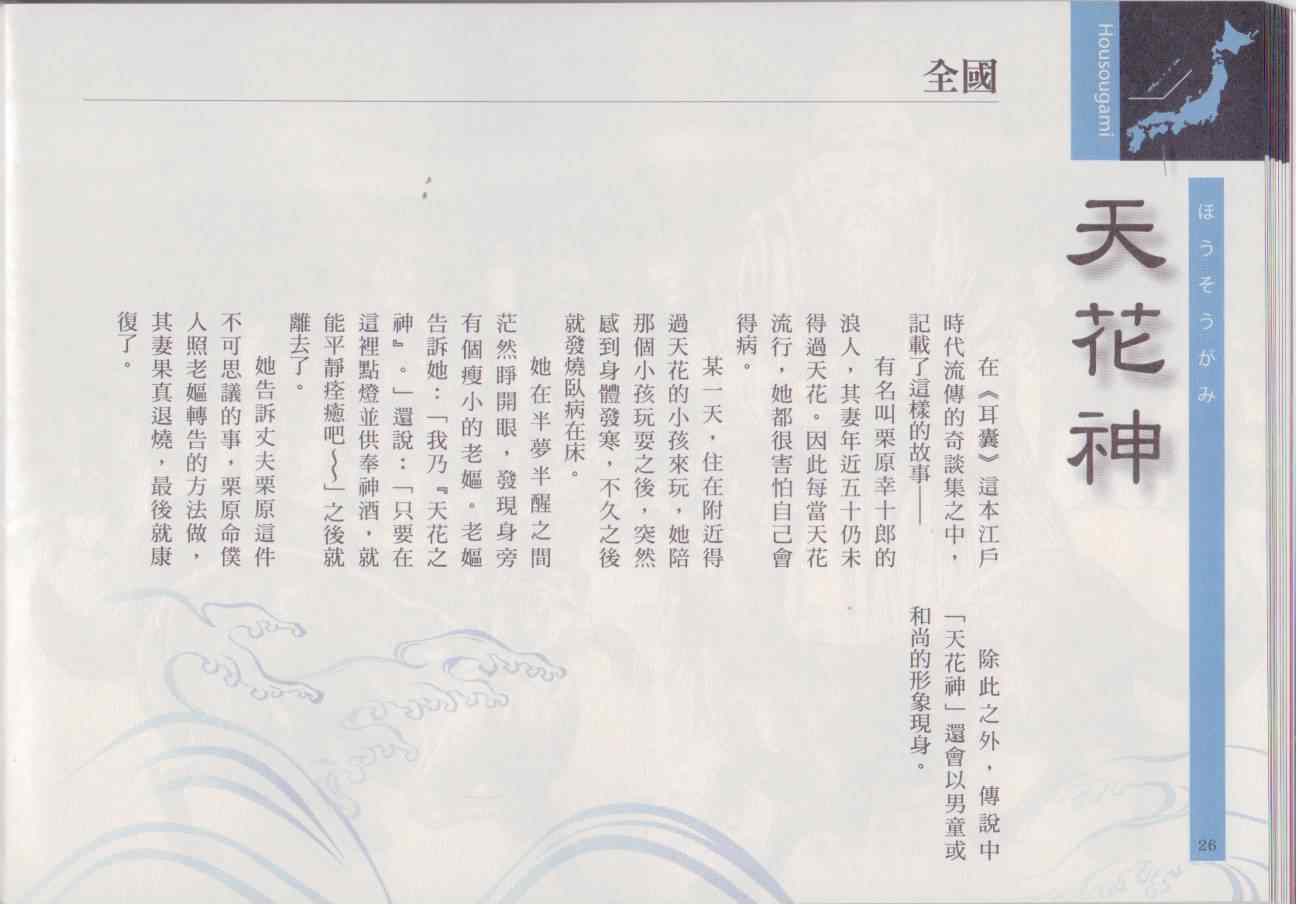 Housougami
ほうそうがみ
天花神
全國
在《耳囊》這本江戶
時代流傳的奇談集之中，
記載了這樣的故事——
有名叫栗原幸十郎的
浪人，其妻年近五十仍未
得過天花。因此每當天花
流行，她都很害怕自己會
得病。
某一天，住在附近得
過天花的小孩來玩，她陪
那個小孩玩耍之後，突然
感到身體發寒，不久之後
就發燒臥病在床。
她在半夢半醒之間
茫然睜開眼，發現身旁
有個瘦小的老嫗。老嫗
告訴她：「我乃『天花之
神』。」還說：「只要在
這裡點燈並供奉神酒，就
能平靜痊癒吧～～」之後就
離去了。
她告訴丈夫栗原這件
不可思議的事，栗原命僕
人照老嫗轉告的方法做，
其妻果真退燒，最後就康
復了。
除此之外，傳說中
「天花神」還會以男童或
和尚的形象現身。
26